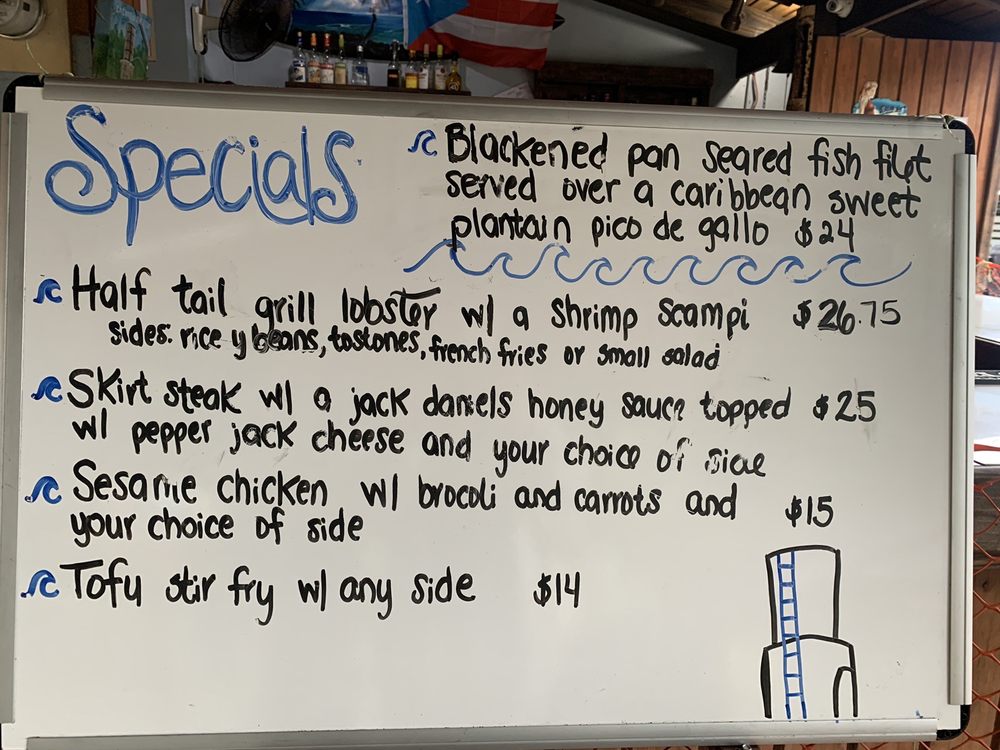 Specials
Blackened pan seared fish filet
served over a caribbean sweet
plantain pico de gallo $24
Half tail grill lobster w/ a Shrimp Scampi $26.75
sides: rice y beans, tostones, french fries or small salad
Skirt steak w/ a jack daniels honey sauce topped $25
w/ pepper jack cheese and your choice of side
Sesame chicken w/ brocoli and carrots and $15
your choice of side
Tofu stir fry w/ any side $14